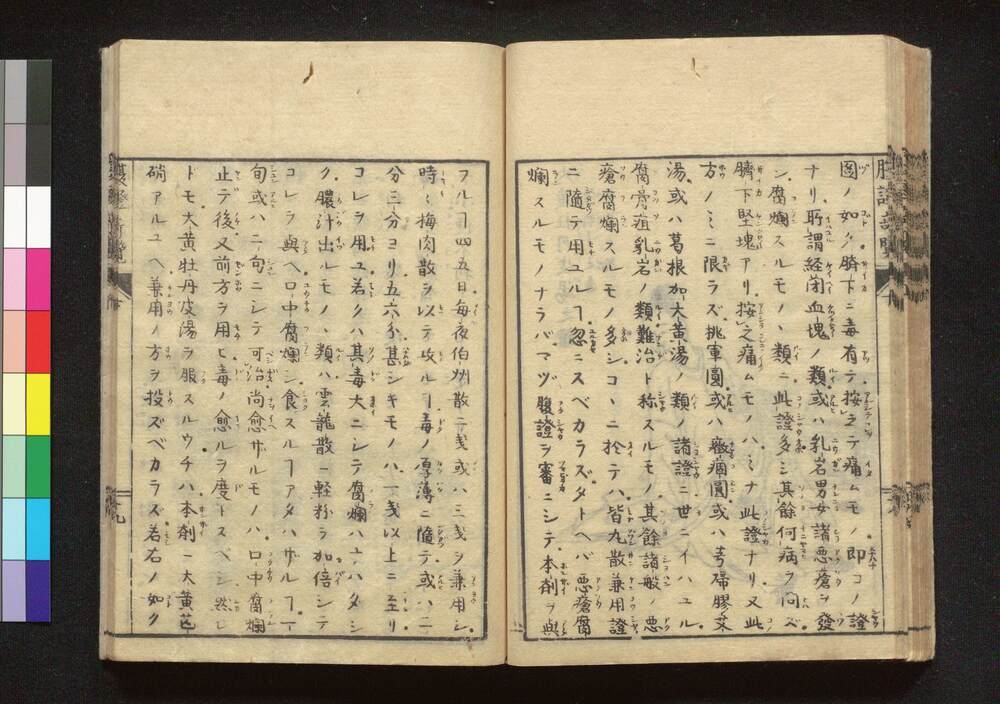 圖ノ如ク臍下ニ毒有テ按之テ痛ムモノ即コノ證
ナリ所謂経閉血塊ノ類或ハ乳岩男女諸悪瘡ヲ發
シ腐爛スルモノヽ類ニ此證多シ其餘何病ヲ問ズ
臍下堅塊アリ按之痛ムモノハミナ此證ナリ又此
方ノミニ限ラズ桃軍圓或ハ
湯或ハ葛根加大黄湯ノ類ノ諸證ニ世ニイハユル
腐骨疽乳岩ノ類難治ト称スルモノ其餘諸般ノ悪
瘡腐爛スルモノ多シコヽニ於テハ皆丸散兼用證
ニ隨テ用ユルヿ忽ニスベカラズタトヘバ悪瘡腐
爛スルモノナラバマヅ腹證ヲ審ニシテ本剤ヲ與
フルヿ四五日毎夜伯州散二戔或ハ三戔ヲ兼用シ
時ニ梅肉散ヲ以テ攻ルヿ毒ノ厚薄ニ隨テ或ハ二
分三分ヨリ五六分甚シキモノハ一戔以上ニ至リ
コレヲ用ユ若クハ其毒大ニシテ腐爛ハハタシ
ク膿汁出ルモノヽ類ハ雲龍散ニ軽粉ヲ加倍シテ
コレヲ與ヘ口中腐爛シ食スルヿアタハザルヿ一
旬或ハ二旬ニシテ可治尚愈ザルモノハ口中腐爛
止デ後又前方ヲ用ヒ毒ノ愈ルヲ度トスベシ然レ
トモ大黄牡丹皮湯ヲ服スルウチハ本剤ニ大黄芒
硝アルユヘ兼用ノ方ヲ投ズベカラズ若右ノ如ク